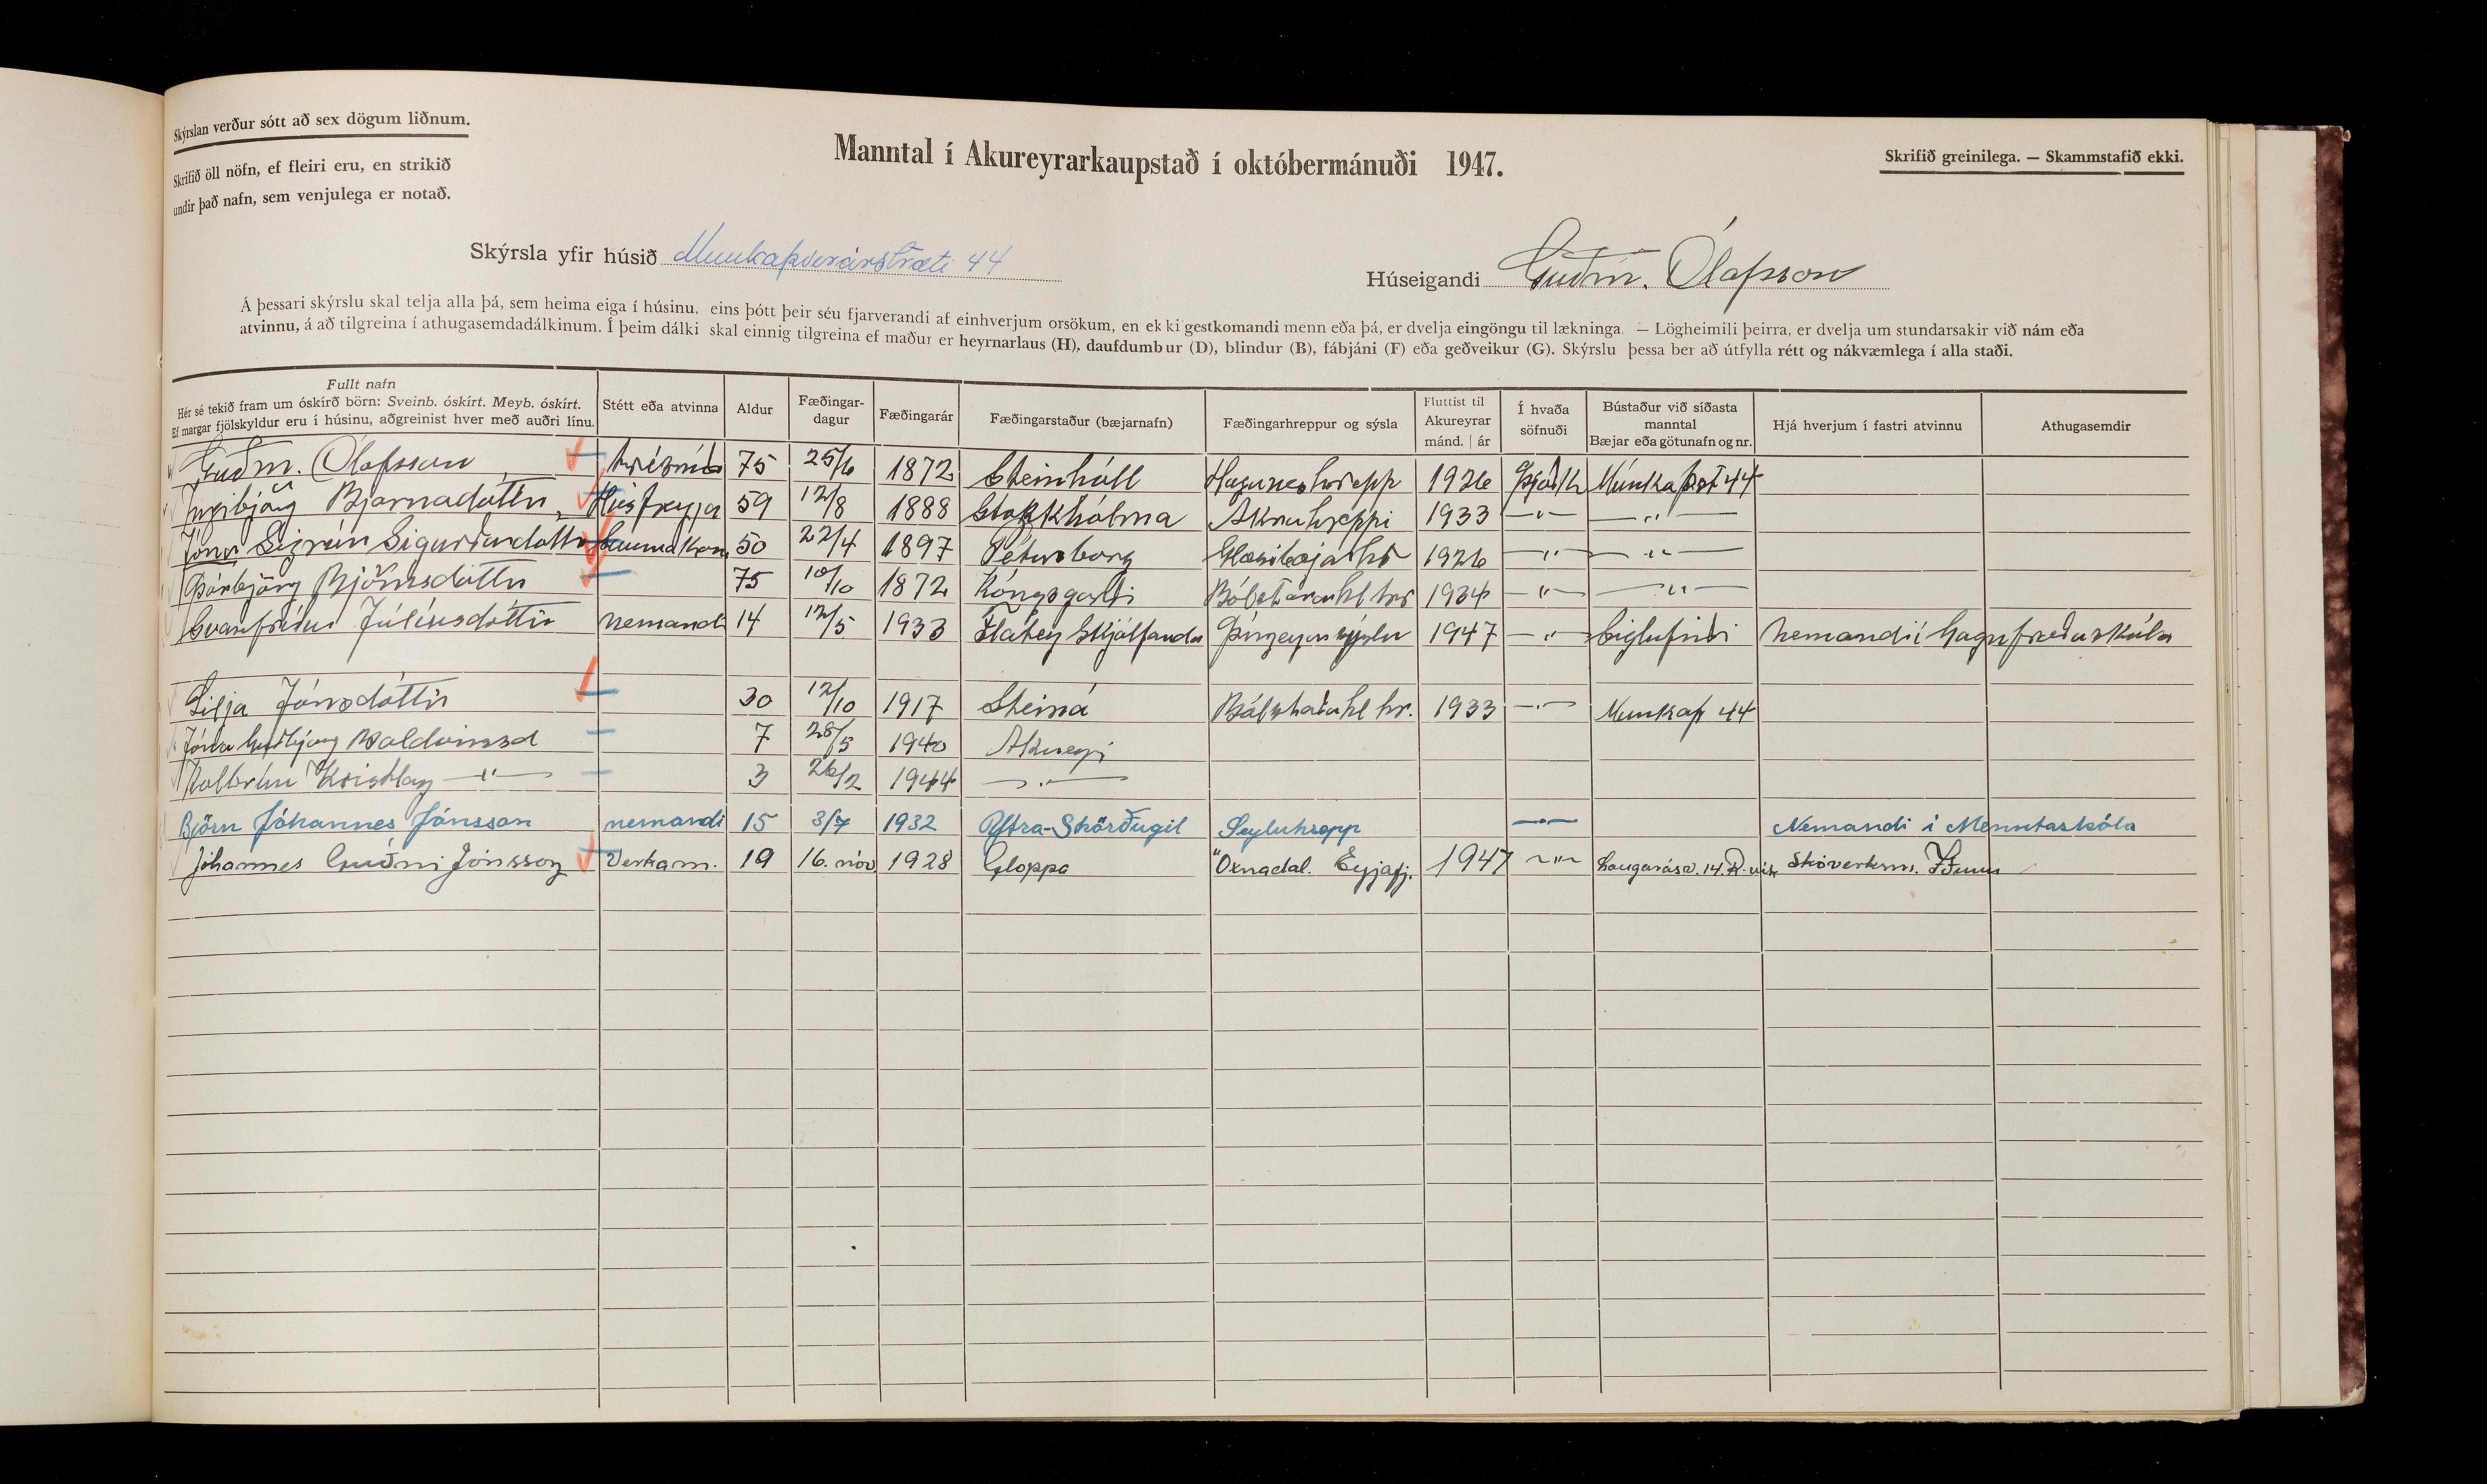 Skýrslan verður sótt að sex dögum liðnum.
Skrifið öll nöfn, ef fleiri eru, en strikið
undir það nafn, sem venjulega er notað.
Manntal í Akureyrarkaupstað í októbermánuði 1947.
Skrifið greinilega. — Skammstafið ekki.
Skýrsla yfir húsið Munkaþverárstræti 44
Húseigandi Guðm. Ólafsson
Á þessari skýrslu skal telja alla þá, sem heima eiga í húsinu, eins þótt þeir séu fjarverandi af einhverjum orsökum, en ekki gestkomandi menn eða þá, er dvelja eingöngu til lækninga. — Lögheimili þeirra, er dvelja um stundarsakir við nám eða
atvinnu, á að tilgreina í athugasemdadálkinum. Í þeim dálki skal einnig tilgreina ef maður er heyrnarlaus (H), daufdumbur (D), blindur (B), fábjáni (F) eða geðveikur (G). Skýrslu þessa ber að útfylla rétt og nákvæmlega í alla staði.
Fullt nafn
Hér sé tekið fram um óskírð börn: Sveinb. óskírt. Meyb. óskírt.
Ef margar fjölskyldur eru í húsinu, aðgreinist hver með auðri línu.
Stétt eða atvinna
Aldur
Fæðingar-
dagur
Fæðingarár
Fæðingarstaður (bæjarnafn)
Fæðingarhreppur og sýsla
Fluttist til
Akureyrar
mánd. | ár
Í hvaða
söfnuði
Bústaður við síðasta
manntal
Bæjar eða götunafn og nr.
Hjá hverjum í fastri atvinnu
Athugasemdir
Guðm. Ólafsson 75 25/6 1872 Steinhóll Haganeshrepp 1926 Þjóðk Múnkaþst 44
Ingibjörg Bjarnadóttir Húsfreyja 59 12/8 1888 Stokkhólma Akrahreppi 1933 —"— —"—
Jóna Sigrún Sigurðardóttir Saumakona 50 22/4 1897 Pétursborg Glæsibæjarhr 1926 —"— —"—
Þórbjörg Björnsdóttir 75 10/10 1872 Kóngsgarði Bólstaðarhl hr 1934 —"— —"—
Svanfríður Júlíusdóttir Nemandi 14 12/5 1933 Flatey Skjálfanda Þingeyarsýslu 1947 —"— Siglufirði Nemandi í Gagnfræðaskóla
Lilja Jónsdóttir 30 12/10 1917 Steiná Bólstaðahl hr. 1933 —"— Munkaþ 44
Jóna Guðbjörg Baldvinsd 7 28/5 1940 Akureyri
Kolbrún Kristlaug —"— 3 26/2 1944 —"—
Björn Jóhannes Jónsson nemandi 15 3/7 1932 Ytra-Skörðugil Seyluhrepp —"— Nemandi í Menntaskóla
Jóhannes Guðni Jónsson Verkam. 19 16. nóv 1928 Gloppa Öxnadal. Eyjafj. 1947 —"— Laugarásv. 14. R.vík Skóverksm. Iðunn